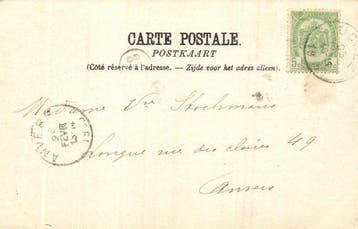 CARTE POSTALE.
POSTKAART
(Côté réservé à l'adresse. — Zijde voor het adres alleen).
Madame Vve Stockmans
Longue rue des claires 49
Anvers
ANVERS
FEVR